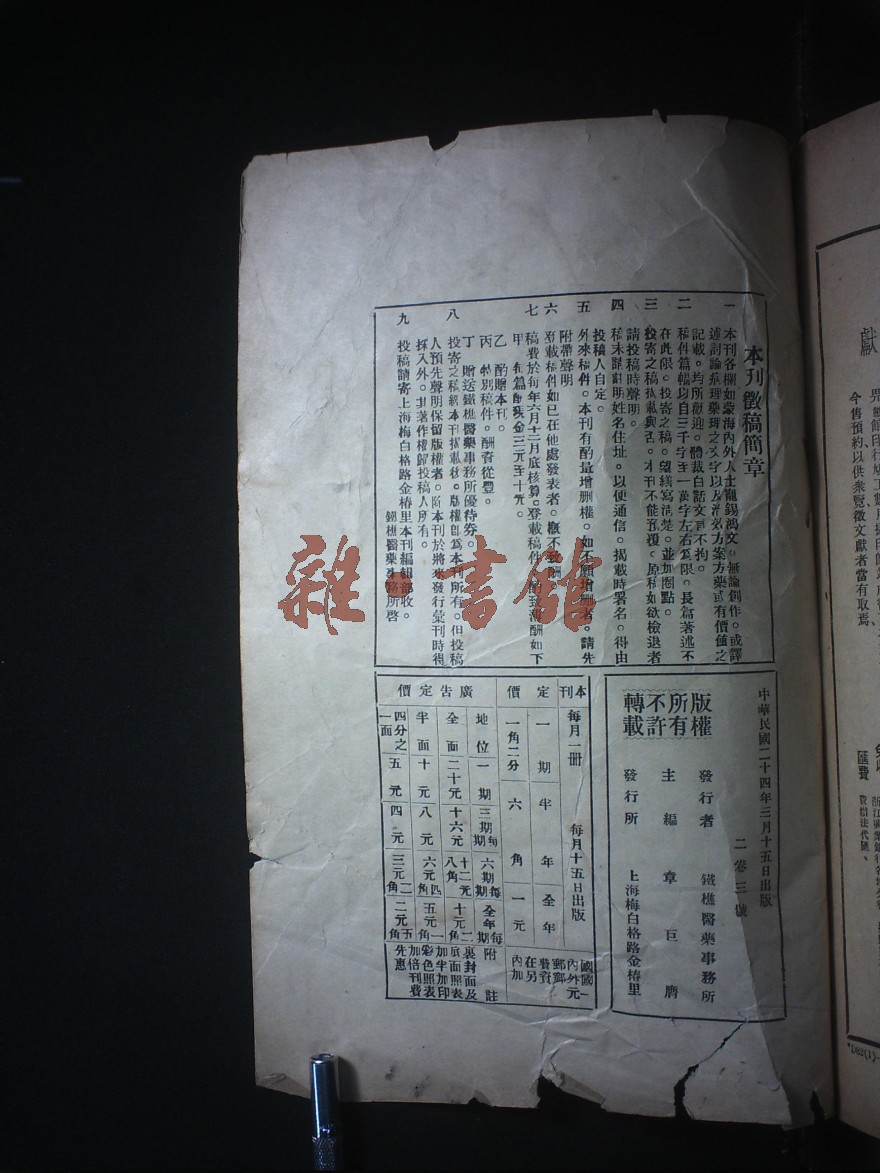 本刊徵稿簡章
一 本刊各攔如蒙海內外人士寵錫鴻文。無論創作。或譯
述討論病理藥理之文字以及有效方案方藥或有價値之
記載。均所歡迎。體裁白話文言不拘。
二 稿件篇幅以自三千字至一萬字左右爲限。長篇著述不
在此限。投寄之稿。望繕寫淸楚。並加圈點。
三 投寄之稿揭載與否。本刊不能預覆。原稿如欲檢退者
請投稿時聲明。
四 稿末請註明姓名住址。以便通信。揭載時署名。得由
投稿人自定。
五 外來稿件。本刊有酌量增删權。如不願增删者。請先
附帶聲明
六 登載稿件如已在他處發表者。概不致酬
七 稿費於每年六月十二月底核算。登載稿件酌致薄酬如下
甲 每篇酌致金三元至十元。
乙 酌贈本刊。
丙 特別稿件。酬資從豐。
丁 贈送鐵樵醫藥事務所優待券。
八 投寄之稿經本刊揭載後。版權卽爲本刊所有。但投稿
人預先聲明保留版權者。除本刊於將來發行彙刊時得
採入外。其著作權歸投稿人所有。
九 投稿請寄上海梅白格路金椿里本刊編輯部收。
鐵樵醫藥事務所啓
中華民國二十四年三月十五日出版
二卷三號
版權所有
不許轉載
發行者 鐵樵醫藥事務所
主編 章巨膺
發行所 上海梅白格路金椿里
本刊定價
每月一冊 每月十五日出版
一期 半年 全年
一角二分 六角 一元
國內郵費在內
國外郵資另加一元
廣告定價
地位 一期 三期每期 六期每期 全年每期
全面 二十元 十六元 十二元八角 十元二角
半面 十元 八元 六元四角 五元一角
四分之一面 五元 四元 三元二角 二元五角
附註
裏封面及底面照表加半加印彩色照表加倍刊費先惠
雜書館
獻
今售預約以供衆覽徵文獻者當有取焉
匯費